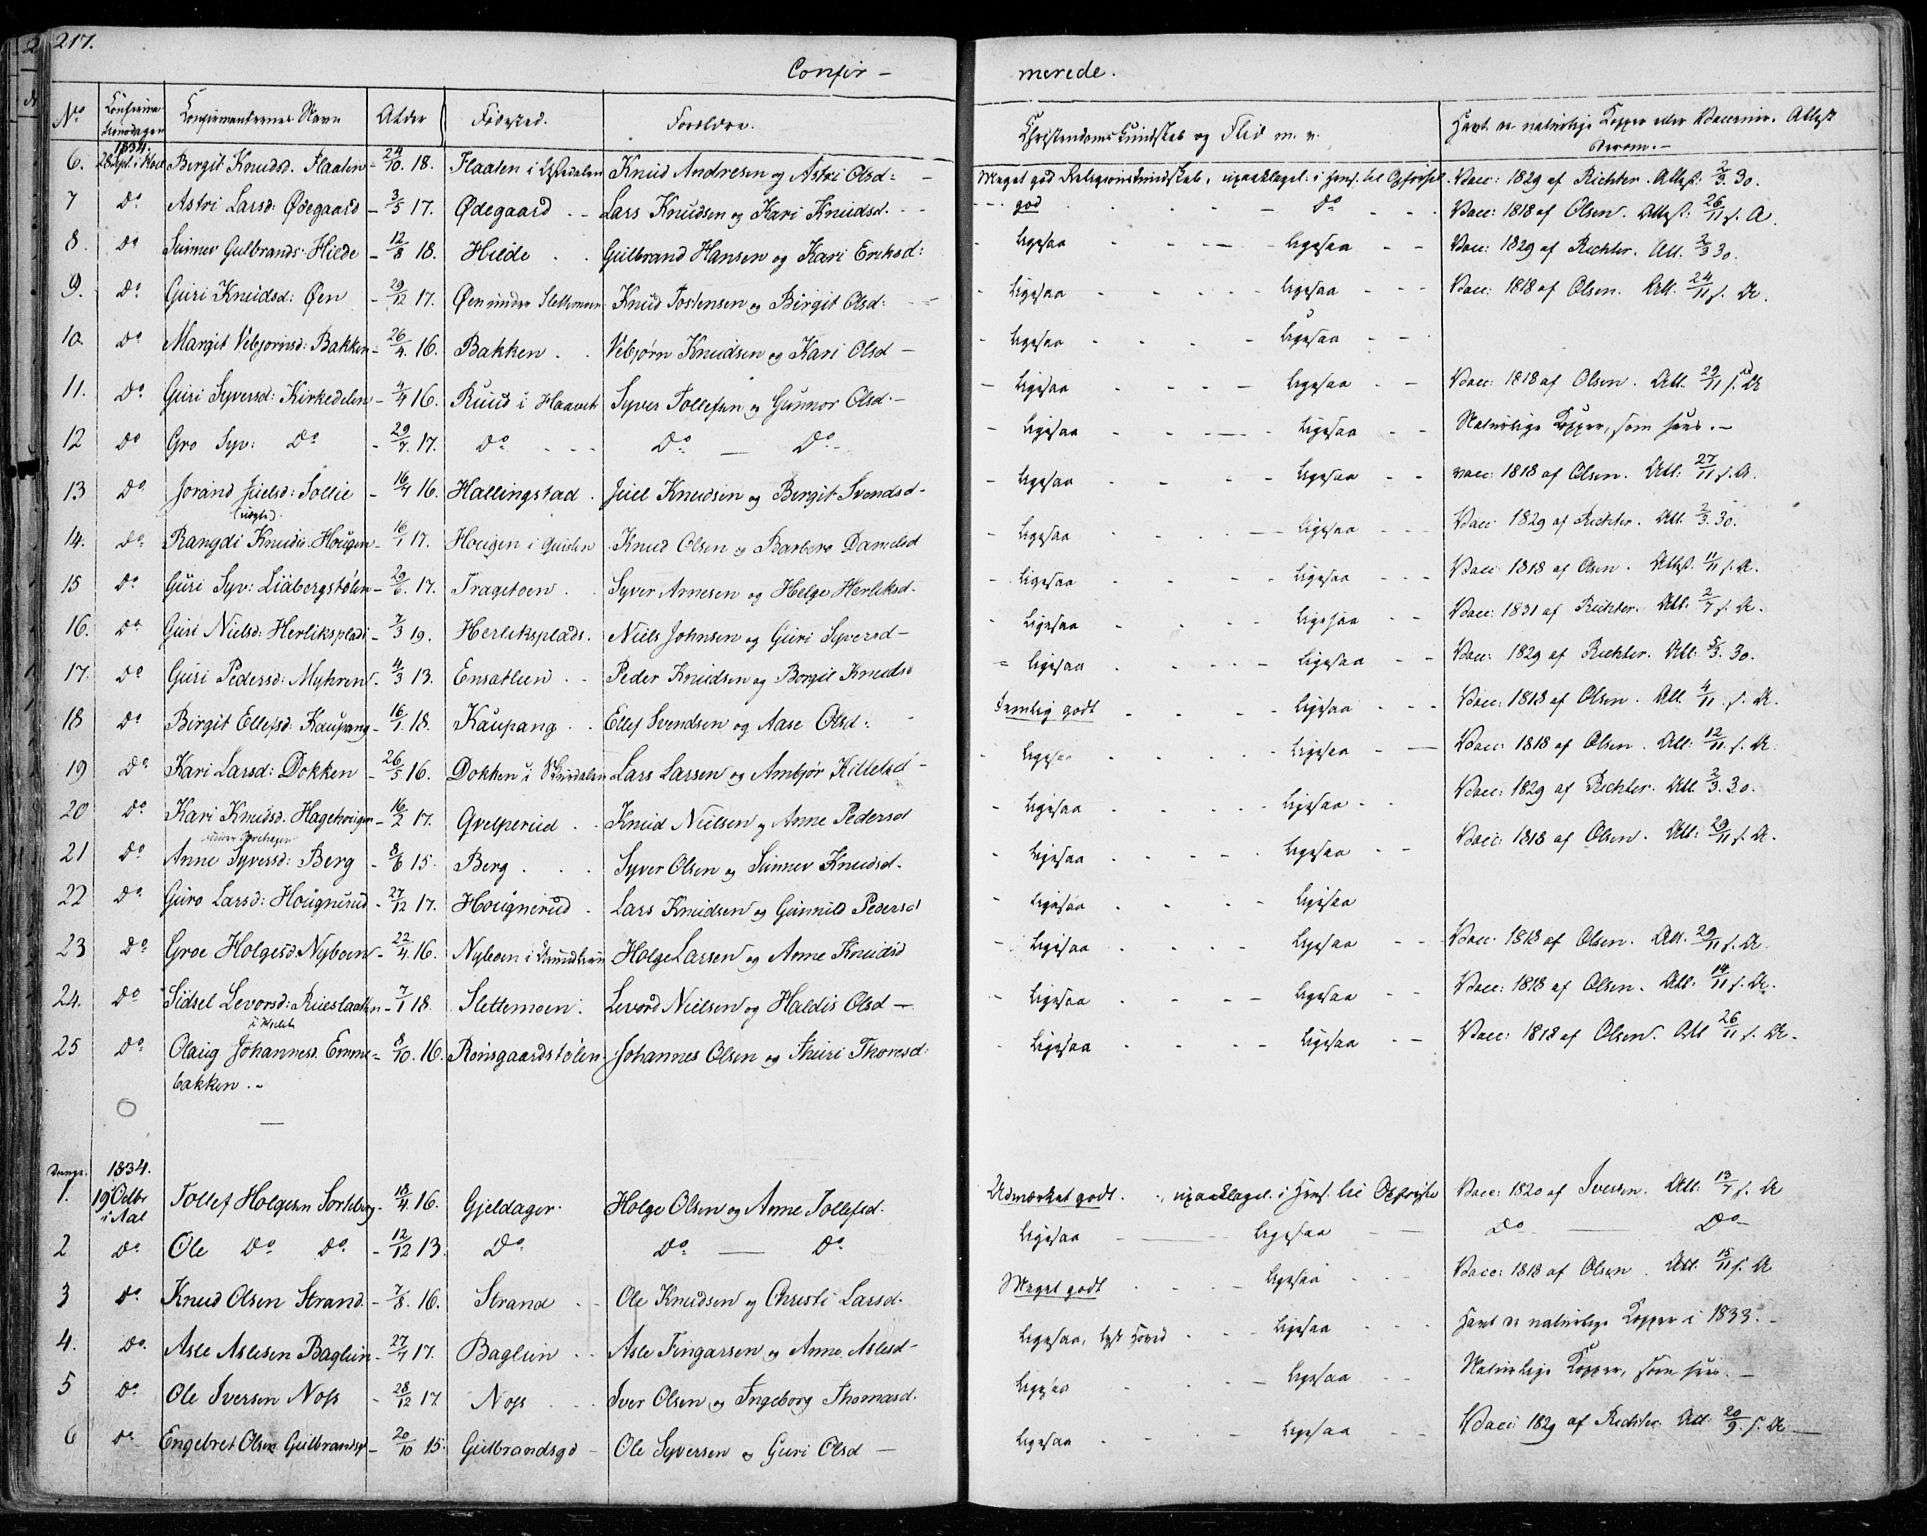 217.
Confir – merede.
No Confirmationsdagen Confirmanternes Navn Alder Fødested. Forældre. Christendoms Kundskab og Flid m. v. Havt de naturlige Kopper eller Vaccinerede Attest derom.–
1834.
6. 28 Spt. i Hol Bergit Knudsd. Flaaten – 24/10. 18. Flaaten i Ustedalen Knud Andresen og Astri Olsd: – Meget god Religionskundskab, upaaklagel. i Hens. til Opførsel. Vacc: 1829 af Richter. Attest: 2/3. 30.
7 Do Astri Larsd: Ødegaard – 3/5 17. Ødegaard Lars Knudsen og Kari Knudsd. god Do Vacc: 1818 af Olsen. Attest: 26/11 s. A.
8. Do Sunnev Gulbrands: Hilde – 12/8 18. Hilde Gulbrand Hansen og Kari Eriksd: ligesaa ligesaa Vacc: 1829 af Richter. Att. 2/3 30.
9. Do Guri Knudsd: Øen – 29/12 17. Øen under Slettemoen Knud Tostensen og Birgit Olsd: ligesaa ligesaa Vacc: 1818 af Olsen. Att. 24/11 s. A.
10. Do Margit Vebjørnsd: Bakken – 26/4 16. Bakken Vebjørn Knudsen og Kari Olsd – ligesaa ligesaa
11. Do Guri Syversd: Kirkedelen – 4/4 16. Ruud i Haavet Syver Tollefsen og Gunnor Olsd. – ligesaa ligesaa Vacc: 1818 af Olsen. Att. 29/11 s. A
12 Do Gro Syv: Do – 29/7. 17. Do Do – Do – ligesaa ligesaa Naturlige Kopper, som sees. –
13 Do Jorand Juelsd: Sollie – 16/4 16. Hallingstad Juel Knudsen og Bergit Svendsd – ligesaa ligesaa vacc: 1818 af Olsen. Att: 27/11 s. A.
14. Do Rangdi Knuds. Hougen – 16/1 17. Hougen i Knud Olsen og Barbero Danielsd ligesaa ligesaa Vacc: 1829 af Richter. Att. 2/3. 30.
15 Do Guri Syv: Liabergstølen – 29/6. 17. Tragetoen Syver Arnesen og Helge Herliksd. ligesaa ligesaa Vacc: 1818 af Olsen. Attest. 11/11 s. A.
16. Do Guri Nielsd: Herliksplads – 7/3 19. Herliksplads. Niels Johnsen og Guri Syversd – ligesaa ligesaa Vacc: 1831 af Richter. Att. 2/7 s. A.
17. Do Guri Pedersd: Myhren – 4/3 13. Ensatlien Peder Knudsen og Borgil Knudsd ligesaa ligesaa Vacc: 1829 af Richter. Att: 5/3. 30.
18 Do Birgit Ellefsd: Kaupang – 16/1 18. Kaupang Ellef Svendsen og Aase Olsd: Temlig godt ligesaa Vacc: 1818 af Olsen. Att. 4/11. s. A.
19 Do Kari Larsd: Dokken – 26/5 16. Dokken i Skurdalen Lars Larsen og Ambjør Killelsd – ligesaa ligesaa Vacc: 1818 af Olsen. Att: 12/11. s. A.
20 Do Kari Knudsd. Hagehougen – 16/2 17. Gvelperud Knud Nielsen og Anne Pedersd ligesaa ligesaa Vacc: 1829 af Richter. Att. 2/3. 30.
21 Do Anne Syversd: Berg – 8/6 15. Berg Syver Olsen og Sunnev Knudsd. ligesaa ligesaa Vacc: 1818 af Olsen. Att: 29/11 s. A.
22 Do Guro Larsd: Hougnerud – 27/12 17. Hougnerud Lars Knudsen og Gunnild Pedersd ligesaa ligesaa
23 Do Groe Holgesd: Nyboen – 22/4. 16. Nyboen i Holge Larsen og Anne Knudsd ligesaa ligesaa Vacc: 1818 af Olsen. Att. 29/11 s. A.
24. Do Sidsel Levorsd: – 7/1 18. Slettemoen. Levord Nielsen og Haldis Olsd – ligesaa ligesaa Vacc: 1818 af Olsen. Att. 14/11 s. A.
25 Do Olaug Johannesd. Emme- – 8/10. 16. Ronsgaardstølen Johannes Olsen og Thuri Thoresd: ligesaa ligesaa Vacc: 1818 af Olsen. Att 26/11 s. A.
bakken. –
Drenge. 1834.
1. 19 Octbr i Aal Tollef Holgesen Sorteberg – 18/4. 16. Gjeldager. Holge Olsen og Anne Tollefsd. Udmærket godt. upaaklagel. i Hens. til Opførsel Vacc: 1820 af Iversen. Att: 13/7 s. A
2 Do. Ole Do Do. – 12/12 13. Do. Do. – Do. ligesaa ligesaa Do Do –
3 Do. Knud Olsen Strand. – 7/8. 16. Strand Ole Knudsen og Christi Larsd. Meget godt ligesaa Vacc: 1818 af Olsen. Att. 15/11 s. A
4. Do. Asle Aslesen Baglien – 27/7 17. Baglien Asle Fingarsen og Anne Aslesd – ligesaa, ligesaa Havt de naturlige Kopper i 1833. –
5 Do Ole Iversen Noss – 28/12 17. Noss Iver Olsen og Ingeborg Thomasd. ligesaa ligesaa Naturlige Kopper, som sees. –
6 Do Engebret Olsen Gulbrandsgd – 20/10 15. Gulbrandsgd – Ole Syversen og Guri Olsd – ligesaa ligesaa Vacc: 1829 af Richter. Att: 20/9 s. A –